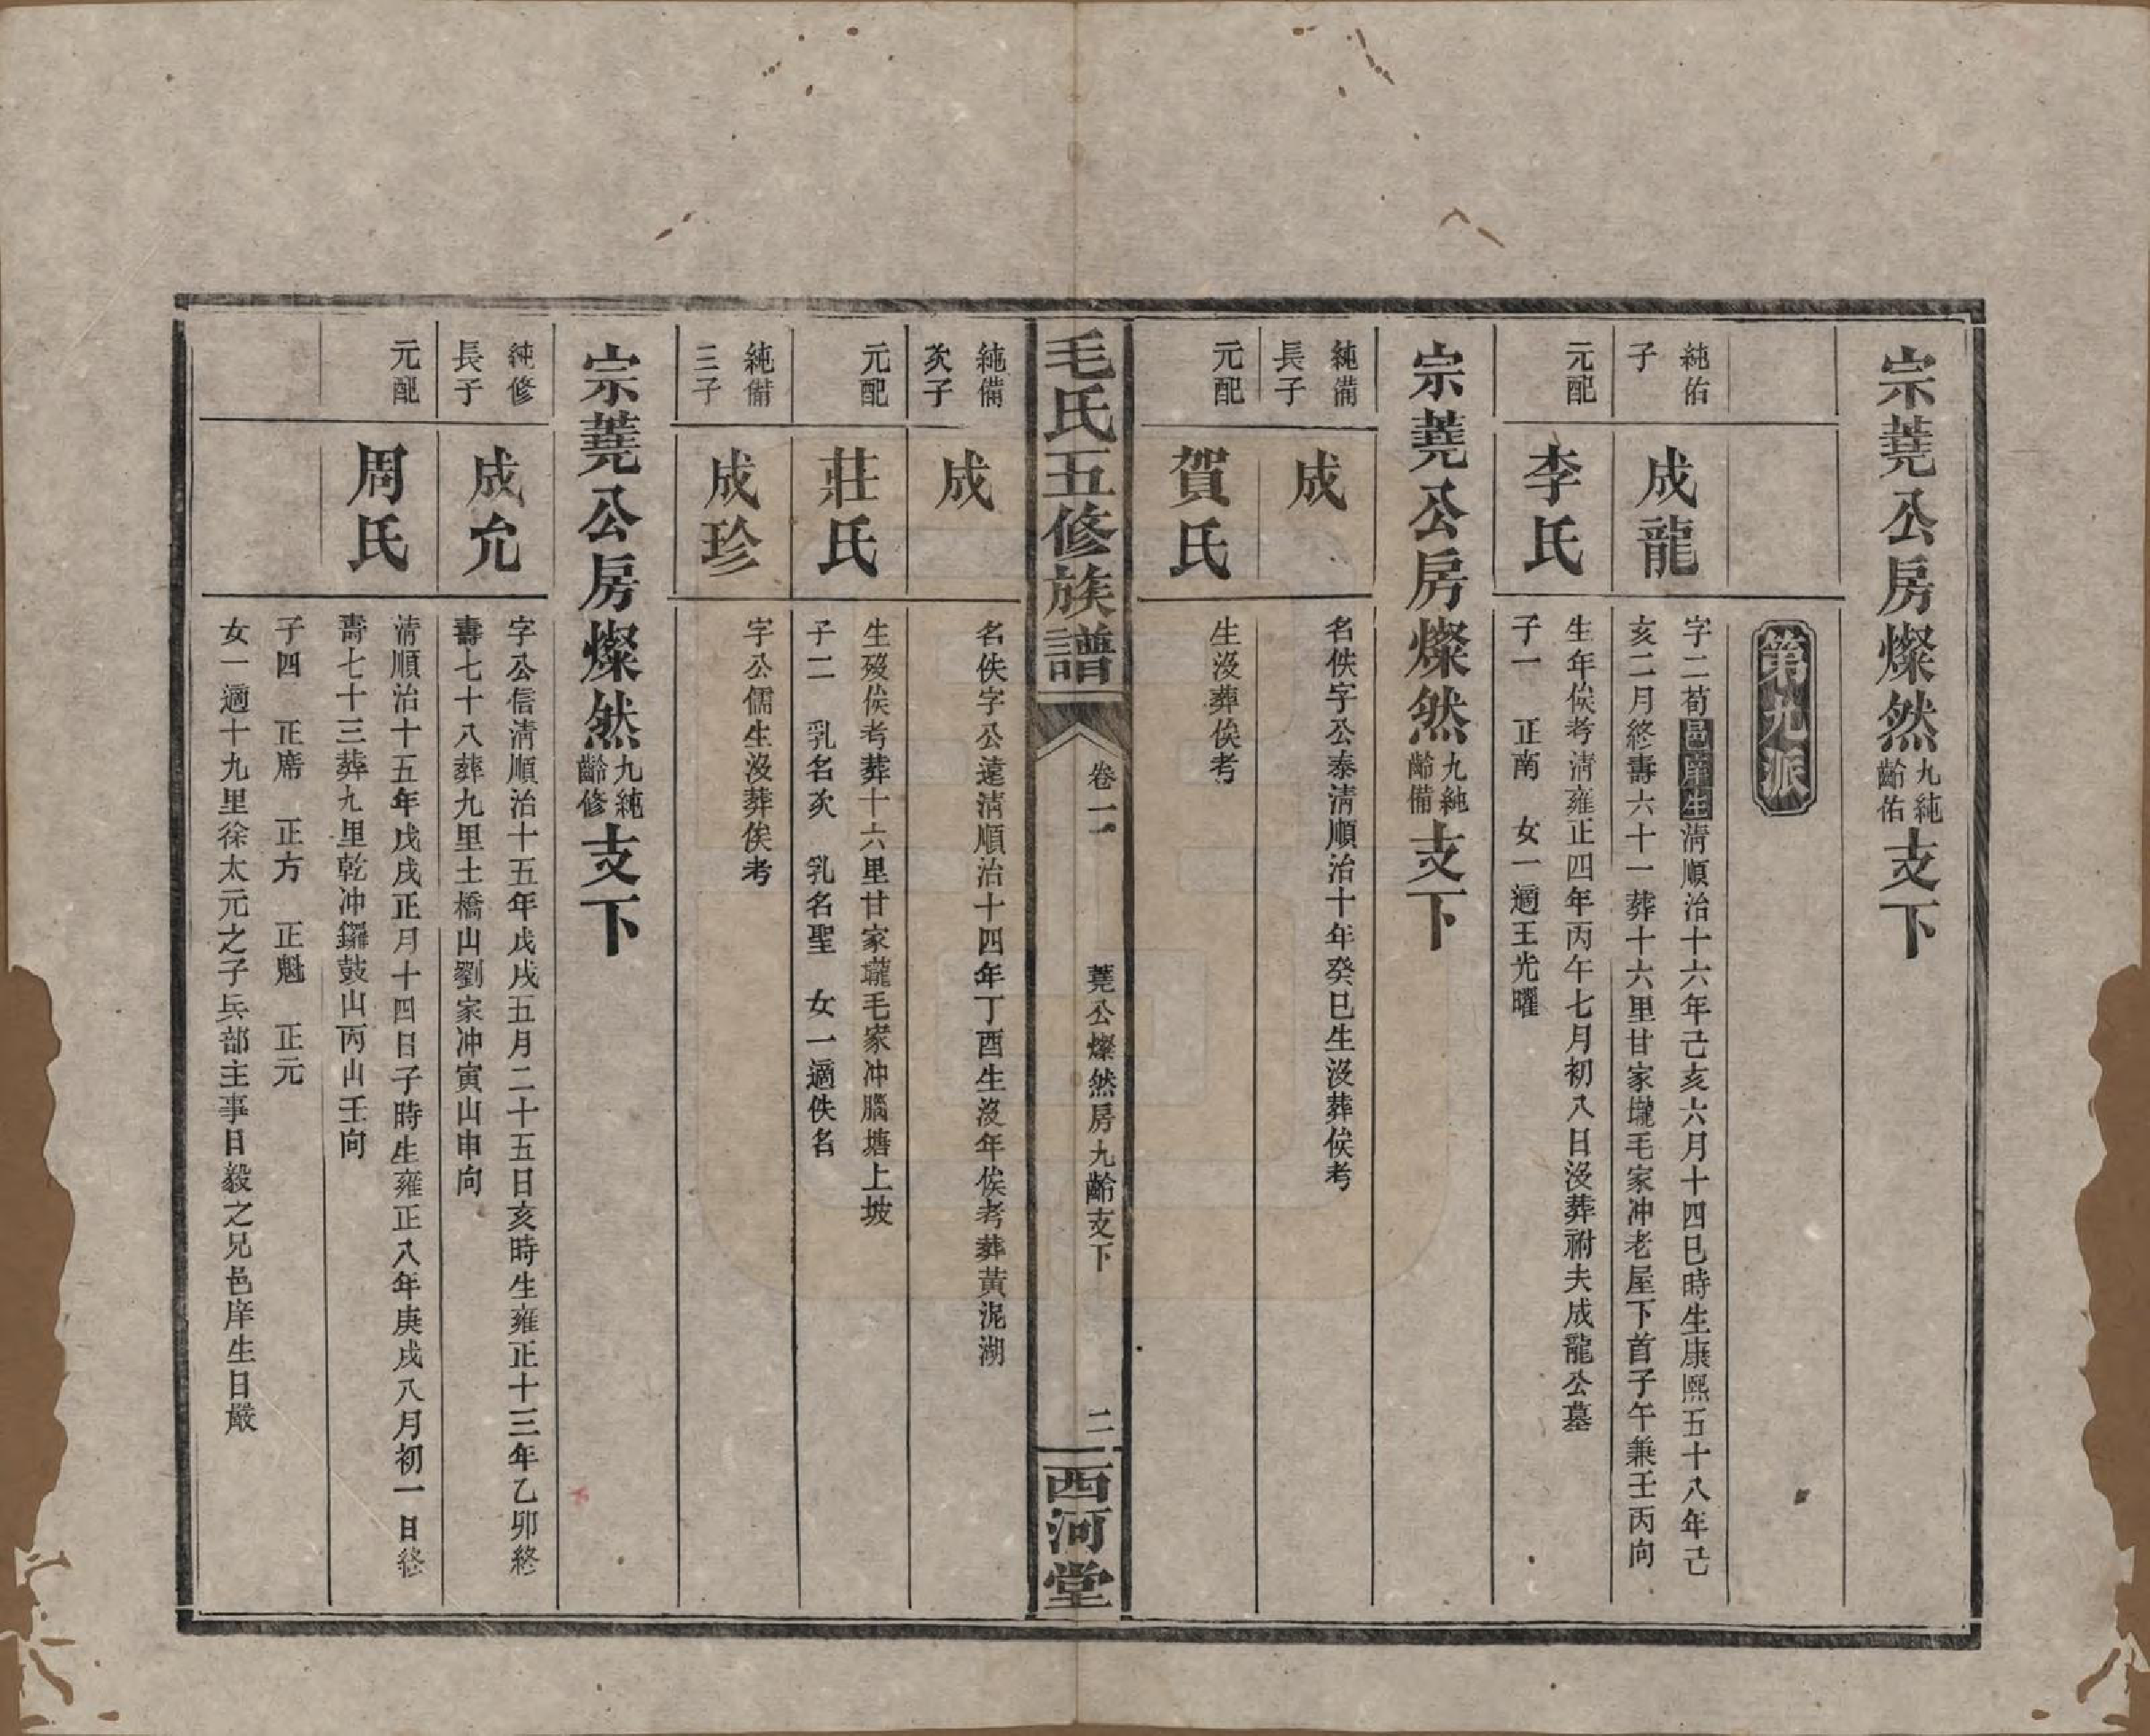 宗蕘公房燦然九齡純佑支下
第九派
純佑子
成龍
字二荀邑庠生清順治十六年己亥六月十四巳時生康熙五十八年己
亥二月終壽六十一葬十六里甘家壠毛家冲老屋下首子午兼壬丙向
元配
李氏
生年俟考清雍正四年丙午七月初八日沒葬祔夫成龍公墓
子一 正南 女一適王光曜
宗蕘公房燦然九齡純備支下
純備長子
成
名佚字公泰清順治十年癸巳生沒葬俟考
元配
賀氏
生沒葬俟考
毛氏五修族譜
卷二
蕘公燦然房九齡支下
二
西河堂
純備次子
成
名佚字公遠清順治十四年丁酉生沒年俟考葬黃泥湖
元配
莊氏
生歿俟考葬十六里甘家壠毛家冲腦塘上坡
子二 乳名亥 乳名聖 女一適佚名
純備三子
成珍
字公儒生沒葬俟考
宗蕘公房燦然九齡純修支下
純修長子
成允
字公信清順治十五年戊戌五月二十五日亥時生雍正十三年乙卯終
壽七十八葬九里土橋山劉家冲寅山申向
元配
周氏
清順治十五年戊戌正月十四日子時生雍正八年庚戌八月初一日終
壽七十三葬九里乾冲鑼鼓山丙山壬向
子四 正席 正方 正魁 正元
女一適十九里徐太元之子兵部主事日毅之兄邑庠生日嚴